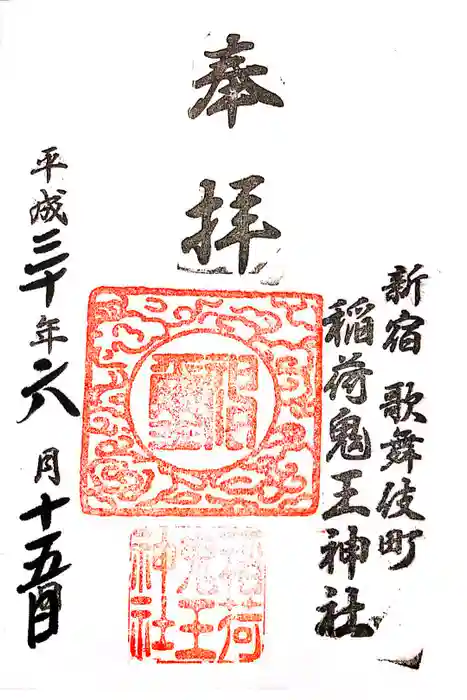 新宿 歌舞伎町
稲荷鬼王神社
奉拝
稲荷
鬼王
神社
平成三十年六月十五日